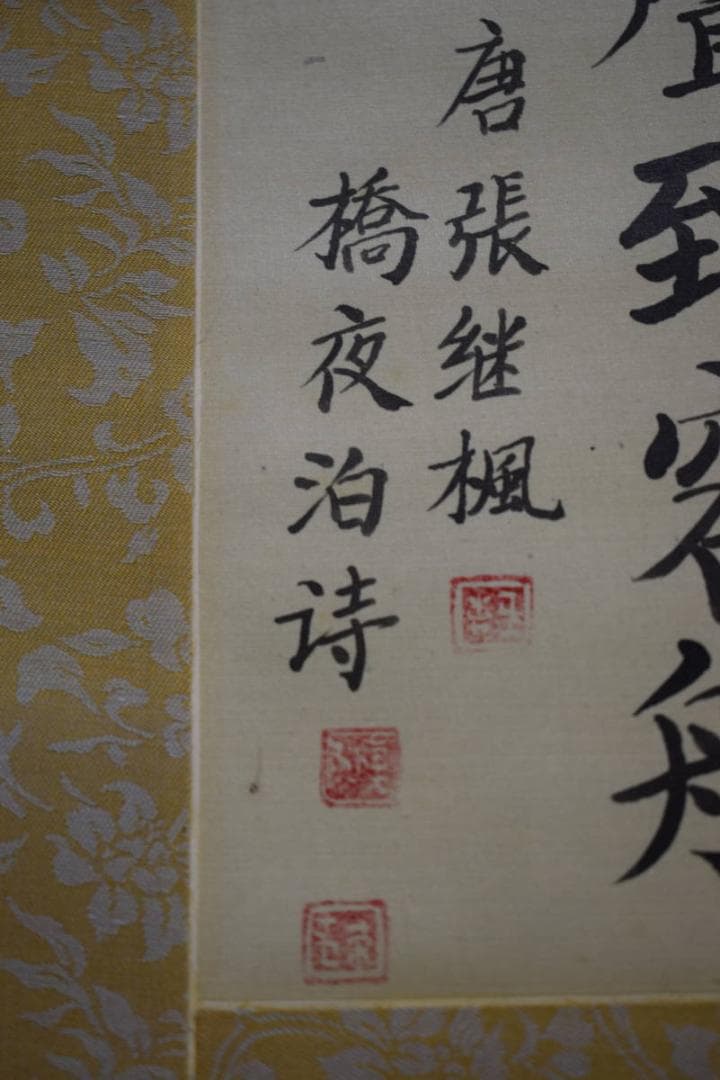 到客船
唐張继楓
橋夜泊诗